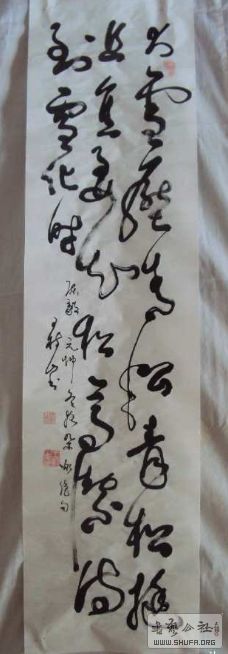 大雪壓青松青松挺
且直要知松高潔待
到雪化時
陈毅元帅冬夜杂咏绝句
书艺公社
WWW.SHUFA.ORG